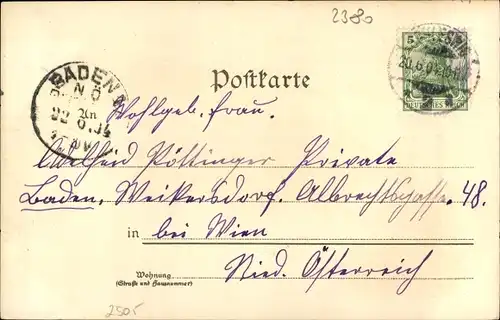 2380
5
20.6.04
DEUTSCHES REICH
BADEN
Postkarte
Wohlgeb. Frau.
Pöttinger Private
Baden, Weikersdorf. Albrechtsgasse. 48.
in bei Wien
Nied. Österreich
Wohnung
(Straße und Hausnummer)
2505